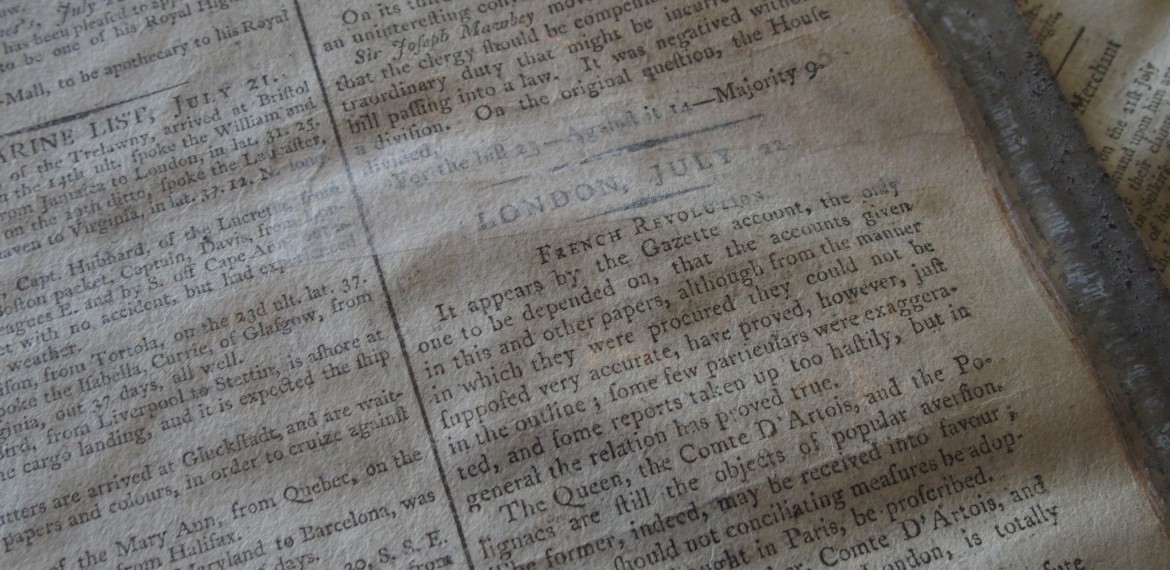 July
has been pleased to app
to be one of his Royal High
-Mall, to be apothecary to his Royal
ARINE LIST, JULY 21.
of the Trelawny, arrived at Bristol
the 14th ult. ſpoke the William and
from Jamaica to London, in lat. 31. 25.
on the 19th ditto, ſpoke the
aven to Virginia, in lat. 37. 12. N.
Capt. Hubbard, of the
oſton packet, Captain, Davis, from
eagues E. and by S. off Cape Ann
et with no accident, but had
weather.
ſon, from Tortola, on the 23d ult. lat. 37.
poke the Iſabella, Currie, of Glaſgow, from
ginia, out 37 days, all well.
ird, from Liverpool to Stettin, is aſhore at
he cargo landing, and it is expected the ſhip
utters are arrived at Gluckſtadt, and are wait-
papers and colours, in order to cruize againſt
of the Mary Ann, from Quebec, on the
from Halifax.
aryland to Barcelona, was
days.
20, S. S. E.
from
On its
an unintereſting
Sir Joſeph Mawbey
that the clergy ſhould be
traordinary duty that might be incurred
bill paſſing into a law. It was negatived without
a diviſion. On the original queſtion, the Houſe
divided,
For the bill 23—Againſt it 14—Majority 9.
LONDON, JULY 22.
FRENCH REVOLUTION.
It appears by the Gazette account, the only
one to be depended on, that the accounts given
in this and other papers, although from the manner
in which they were procured they could not be
ſuppoſed very accurate, have proved, however, juſt
in the outline; ſome few particulars were exaggera-
ted, and ſome reports taken up too haſtily, but in
general the relation has proved true.
The Queen, the Comte D'Artois, and the Po-
lignacs are ſtill the objects of popular averſion.
The former, indeed, may be received into favour;
ſhould not conciliating meaſures be adop-
in Paris, be proſcribed.
Comte D'Artois, and
London, is totally
Merchant
on the 21ſt July
and upon him